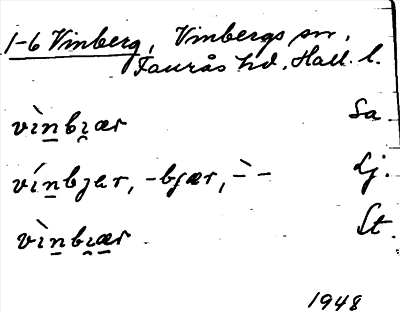 1-6 Vinberg, Vinbergs sn,
Faurås hd. Hall. l.
vìn̲bi̯ær Sa
vín̲bjer, -bjær, -̀- Lj.
vìn̲bi̯æ̲r St.
1948